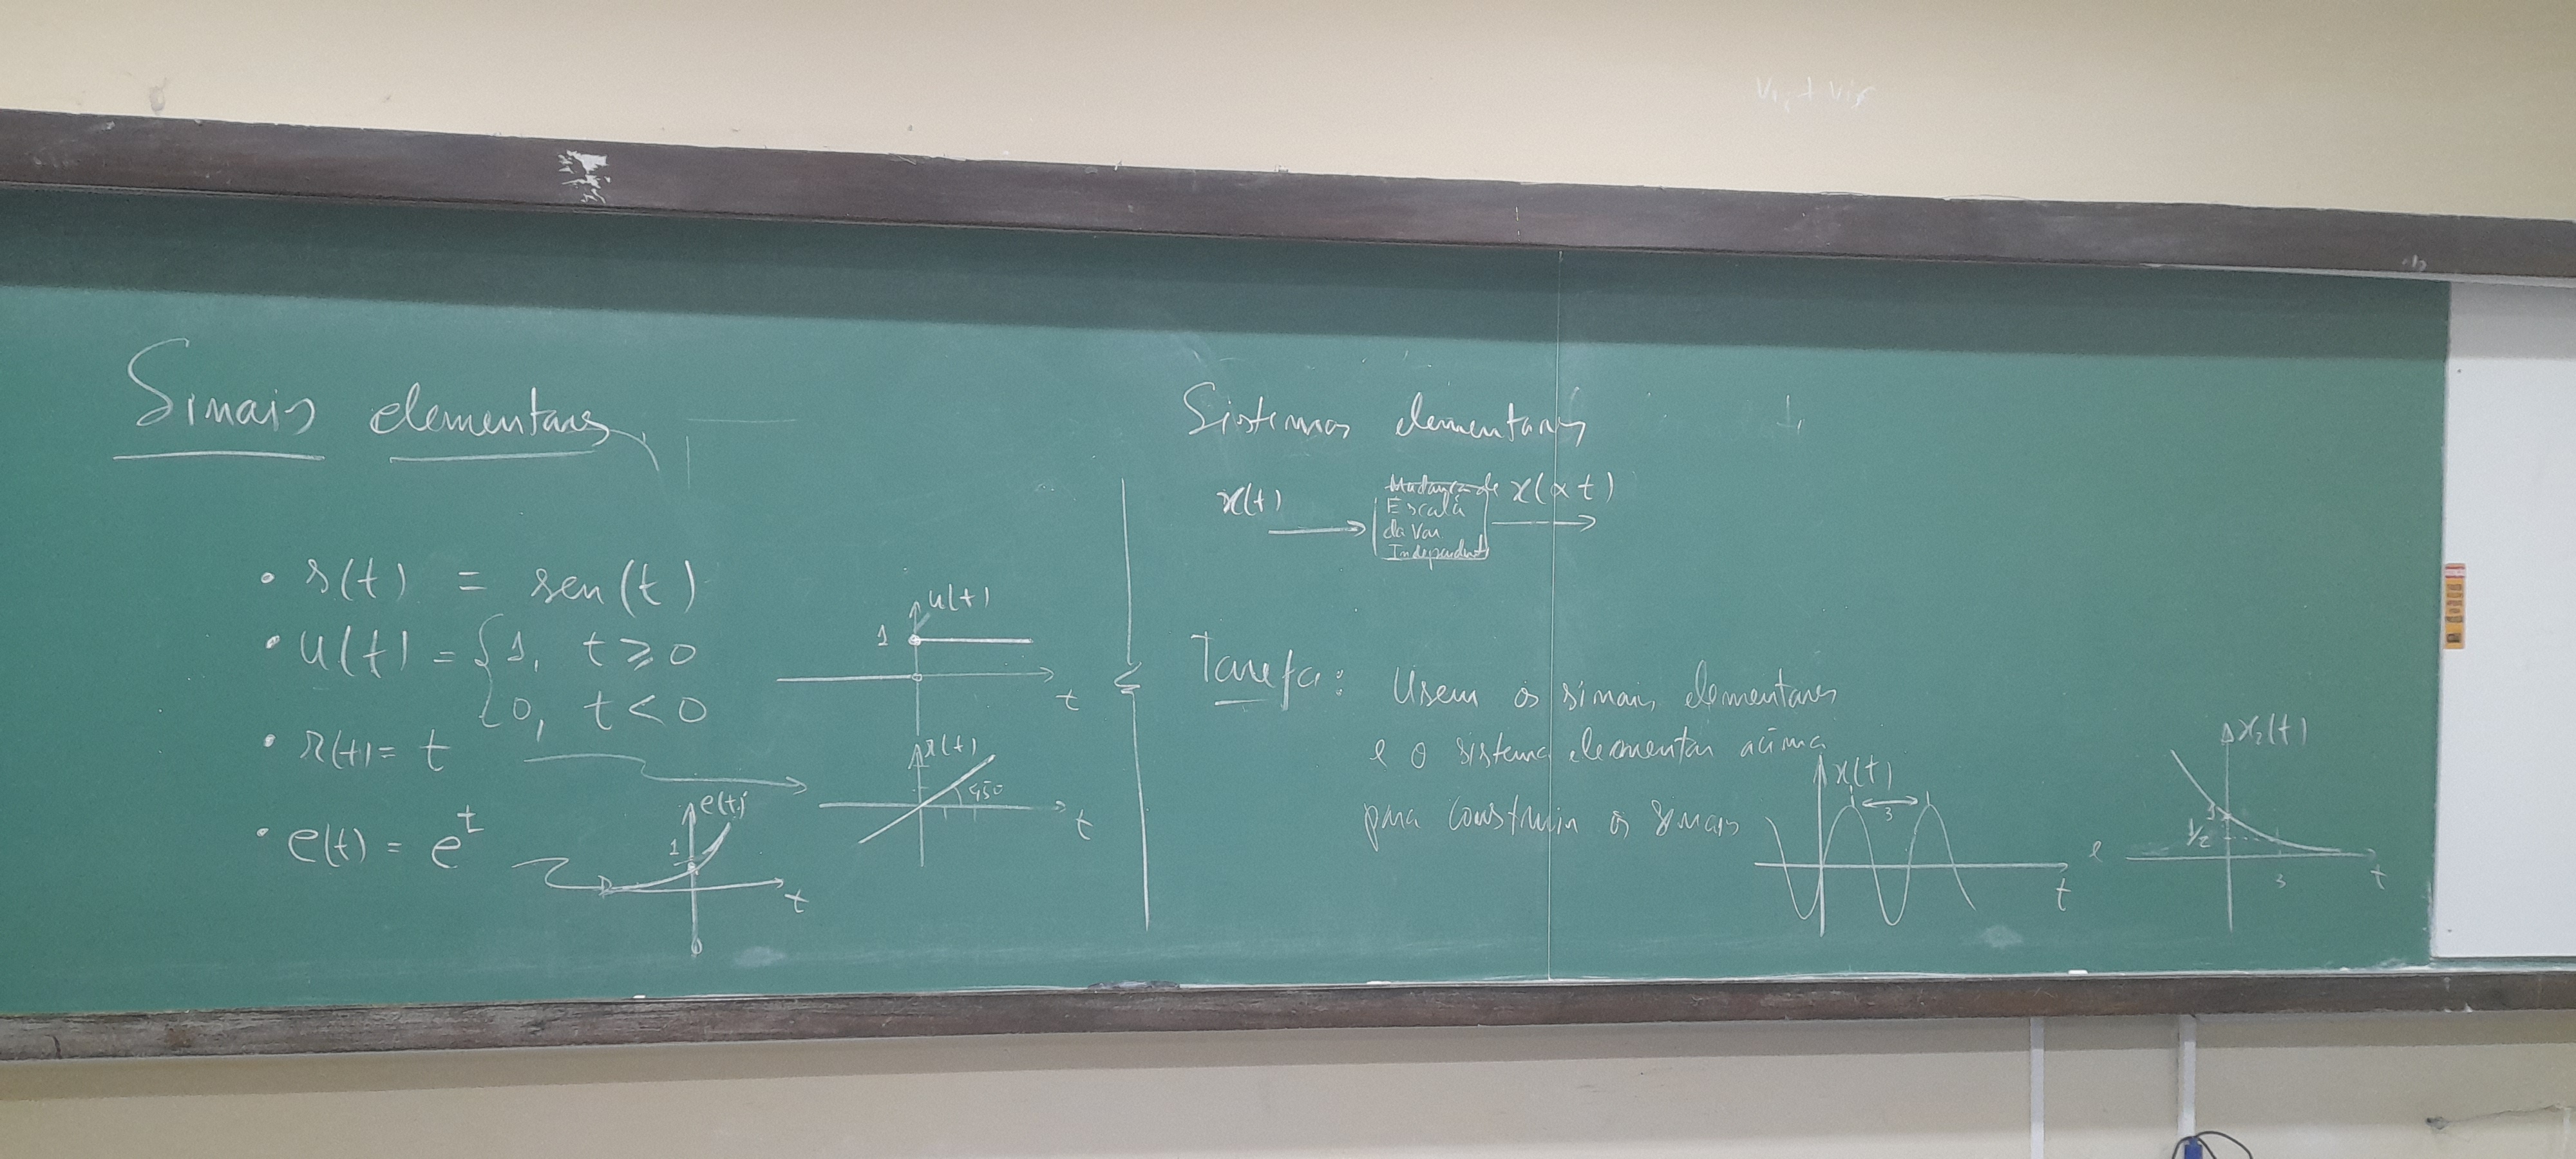 Sinais elementares
• s(t) = sen(t)
• u(t) = { 1, t ≥ 0
0, t < 0
• r(t) = t
• e(t) = e^t
u(t)
1
t
r(t)
45º
t
e(t)
1
t
Sistemas elementares
x(t)
Mudança de
Escala
da Var
Independente
x(αt)
Tarefa: Usem os sinais elementares
e o sistema elementar acima
para construir os sinais
x(t)
3
t
e
x₂(t)
1
1/2
3
t